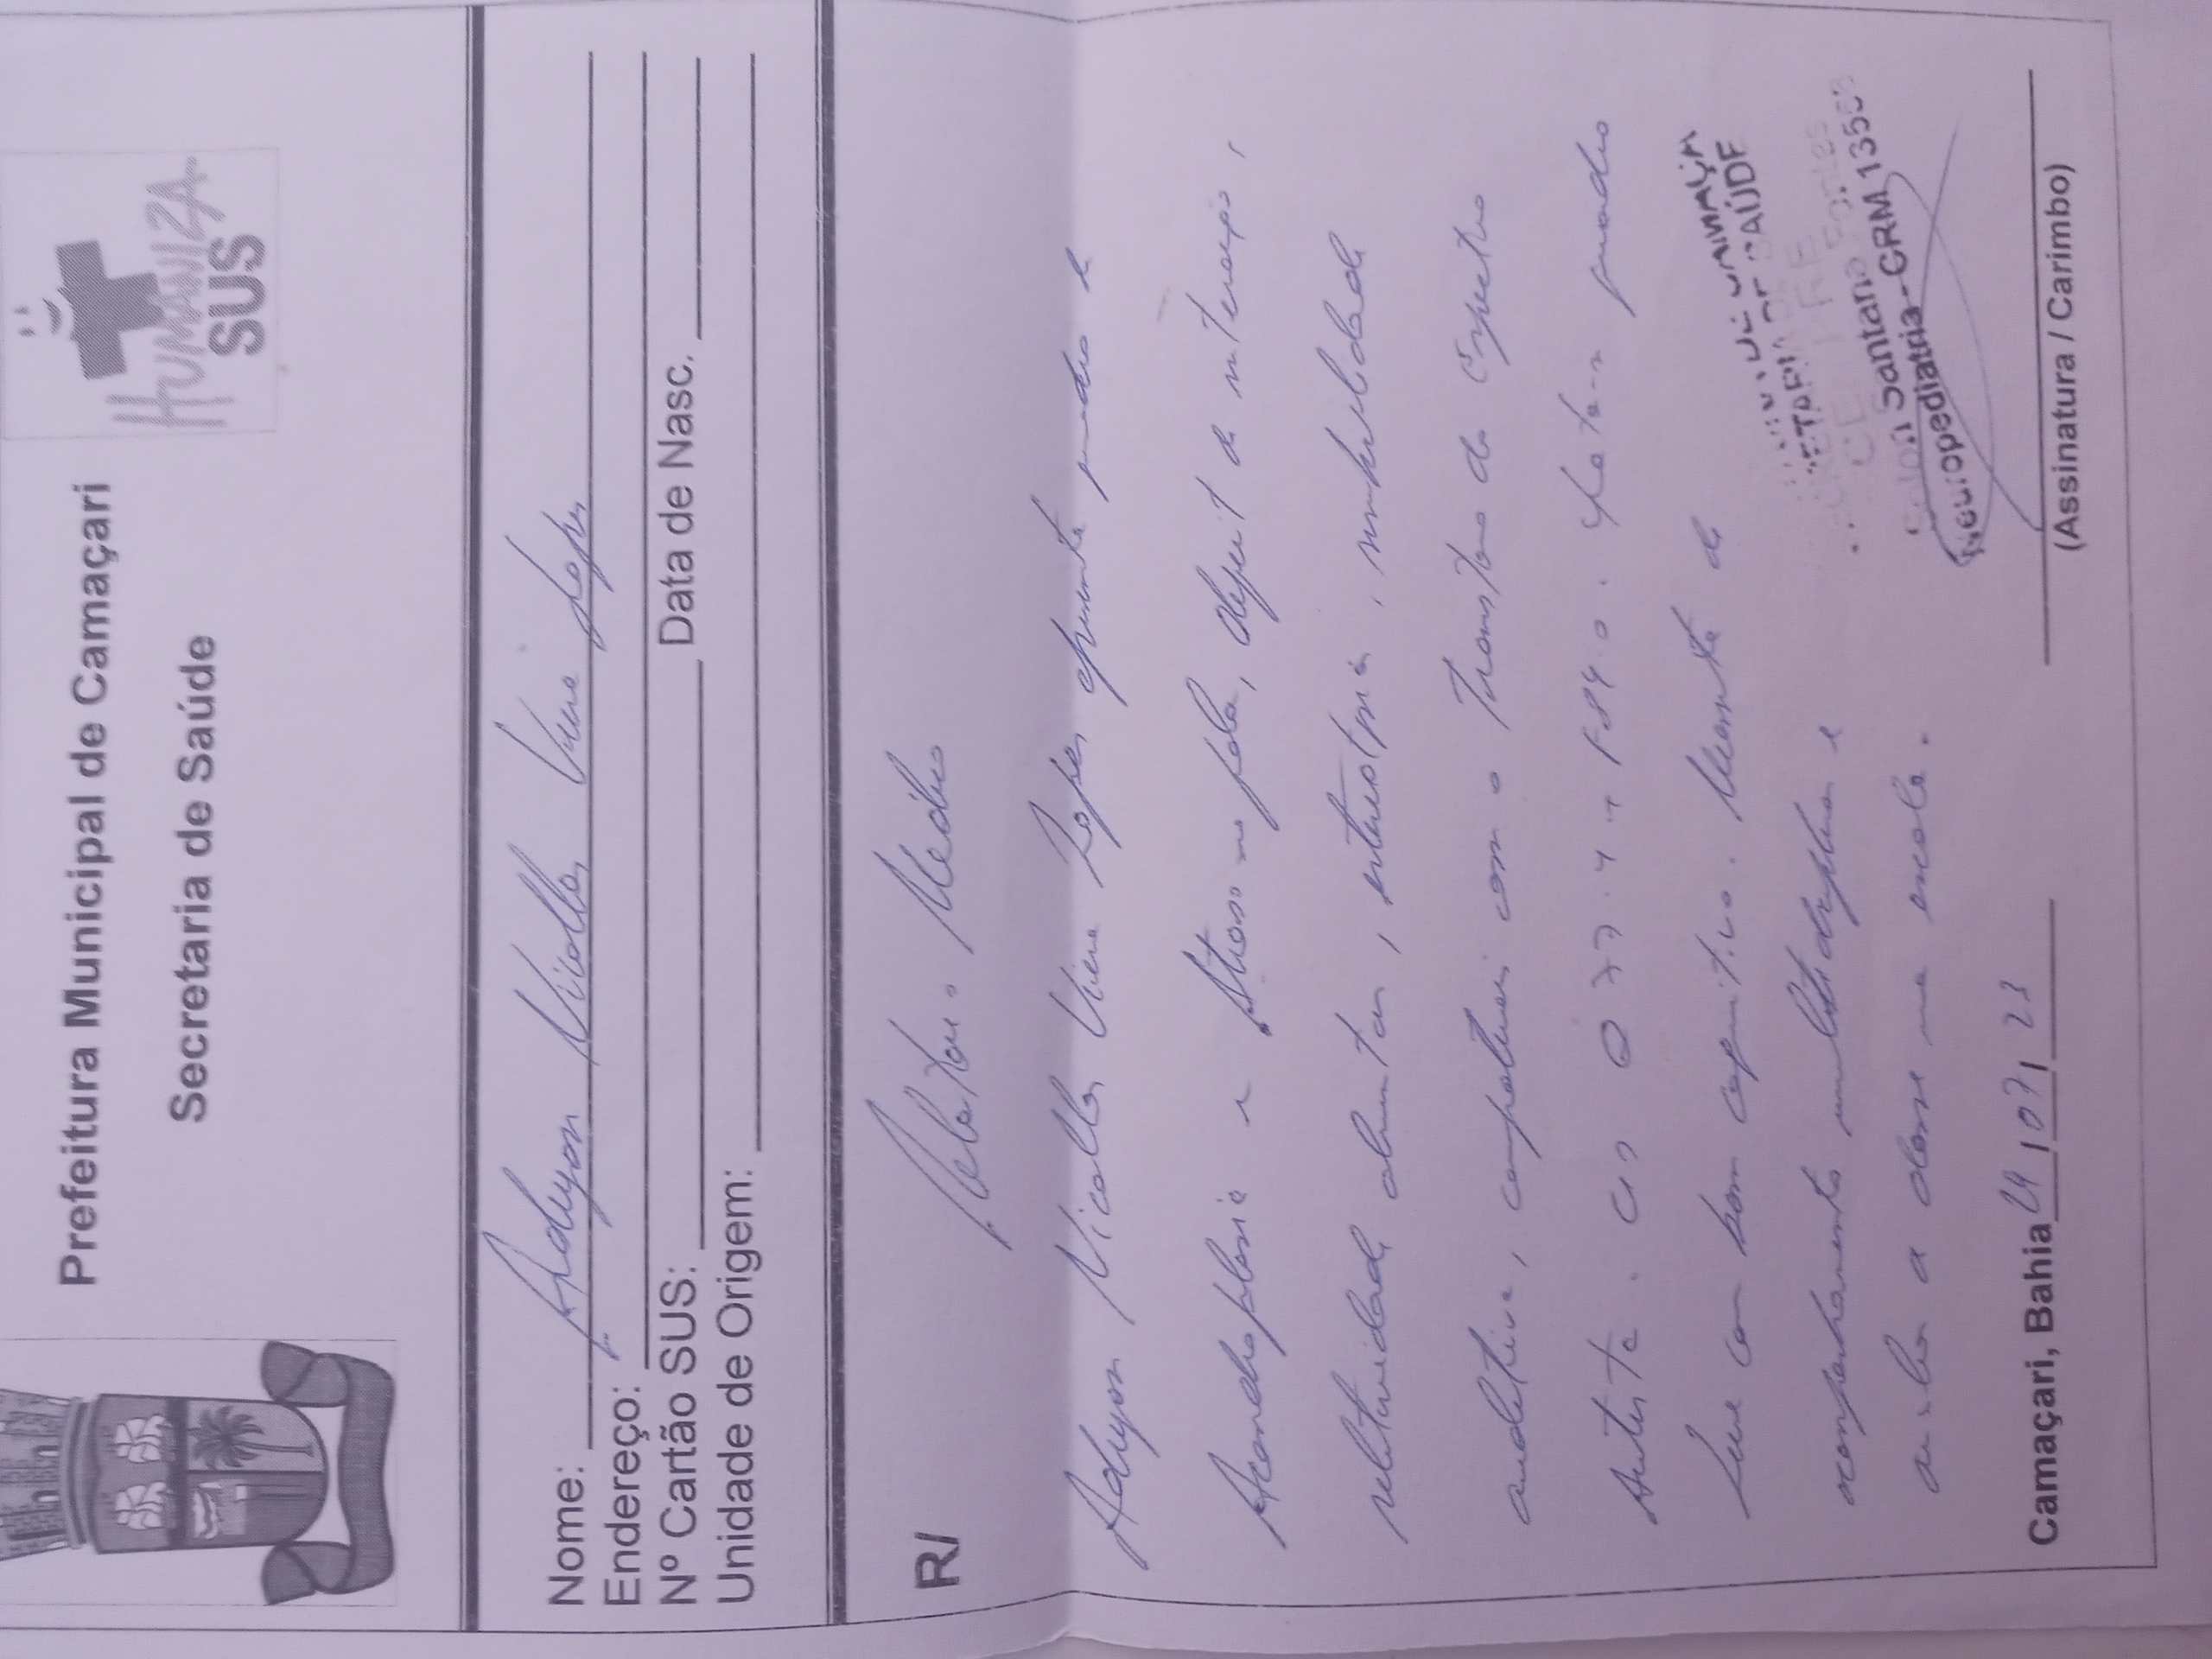 Prefeitura Municipal de Camaçari
Secretaria de Saúde
HUMANIZA
SUS
Nome: Adryan Nicollas Viera Lopes
Endereço:
Nº Cartão SUS: Data de Nasc.
Unidade de Origem:
R/ Relatorio Médico
Adryan Nicollas Viera Lopes apresenta quadro de
Acondroplasia e Atraso na fala, deficit de interação,
seletividade alimentar, estereotipia, sensibilidade
auditiva, compativeis com o Transtorno do Espectro
Autista. CID Q77.4 + F84.0. quadro
Leve com bom cognitivo. Necessita de
acompanhamento multidisciplinar e
auxiliar de classe na escola.
DE CAMAÇA
SECRETARIA DE SAÚDE
Solon Santana Fontes
Neuropediatria - CRM
Camaçari, Bahia /07/ 23
(Assinatura / Carimbo)